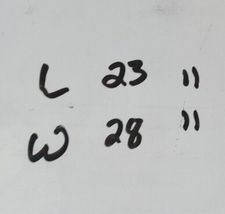 L 23 "
W 28 "